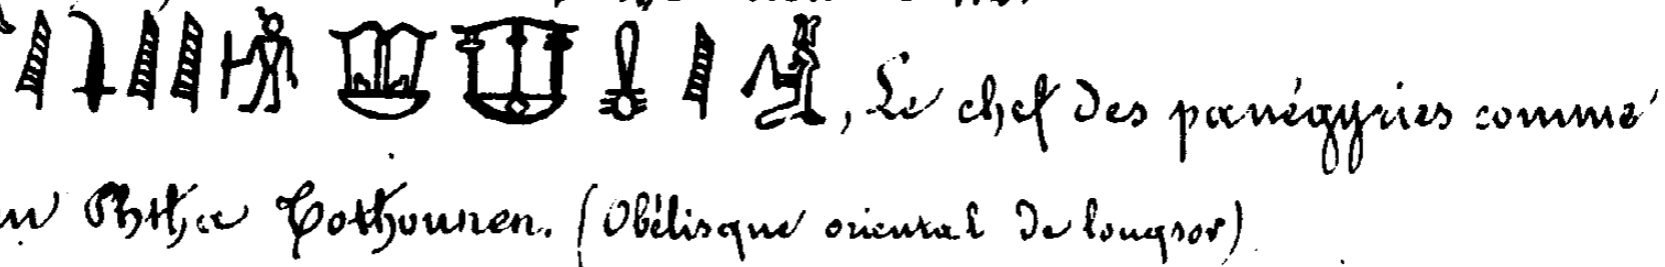 , Le chef des panégyries comme
Phtha Tothounen. (Obélisque oriental de louqsor)